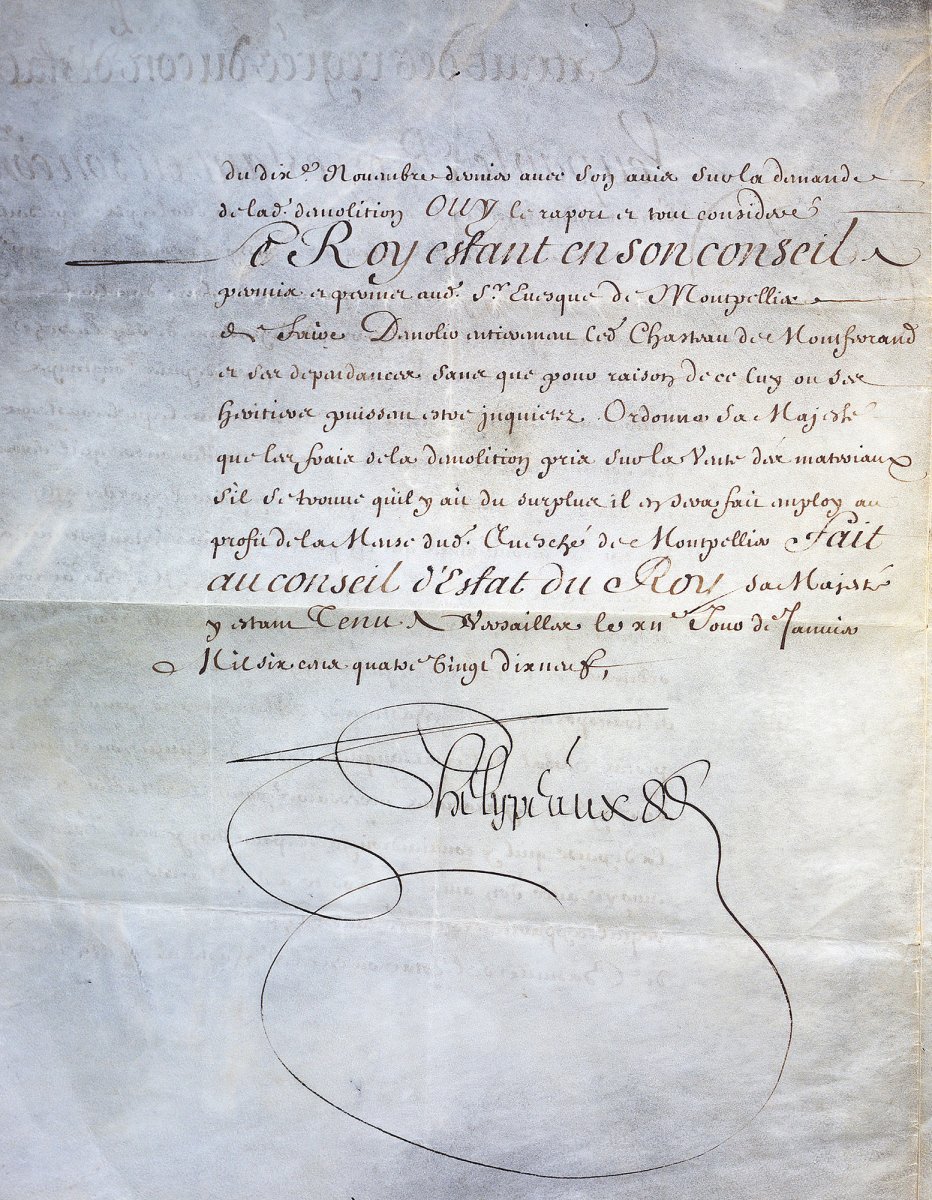 du dix.e Novembre dernier avec son avis sur la demande
de lad. demolition OUY le raport et tout consideré
Le Roy estant en son conseil
permis et permet aud. Sr. Evesque de Montpellier
de faire Demolir entierement led. Chasteau de Montferrand
et ses dependances sans que pour raison de ce luy ou ses
heritiers puissent estre inquietez. Ordonne sa Majesté
que les frais de la demolition pris sur la Vente des materiaux
s'il se trouve qu'il y ait du surplus il en sera fait employ au
profit de la Mense dud. Evesché de Montpellier Fait
au conseil d'Estat du Roy sa Majesté
y estant Tenu A Versailles le xiie Jour de Janvier
Mil six cens quatre vingt dix neuf,
Phelypeaux